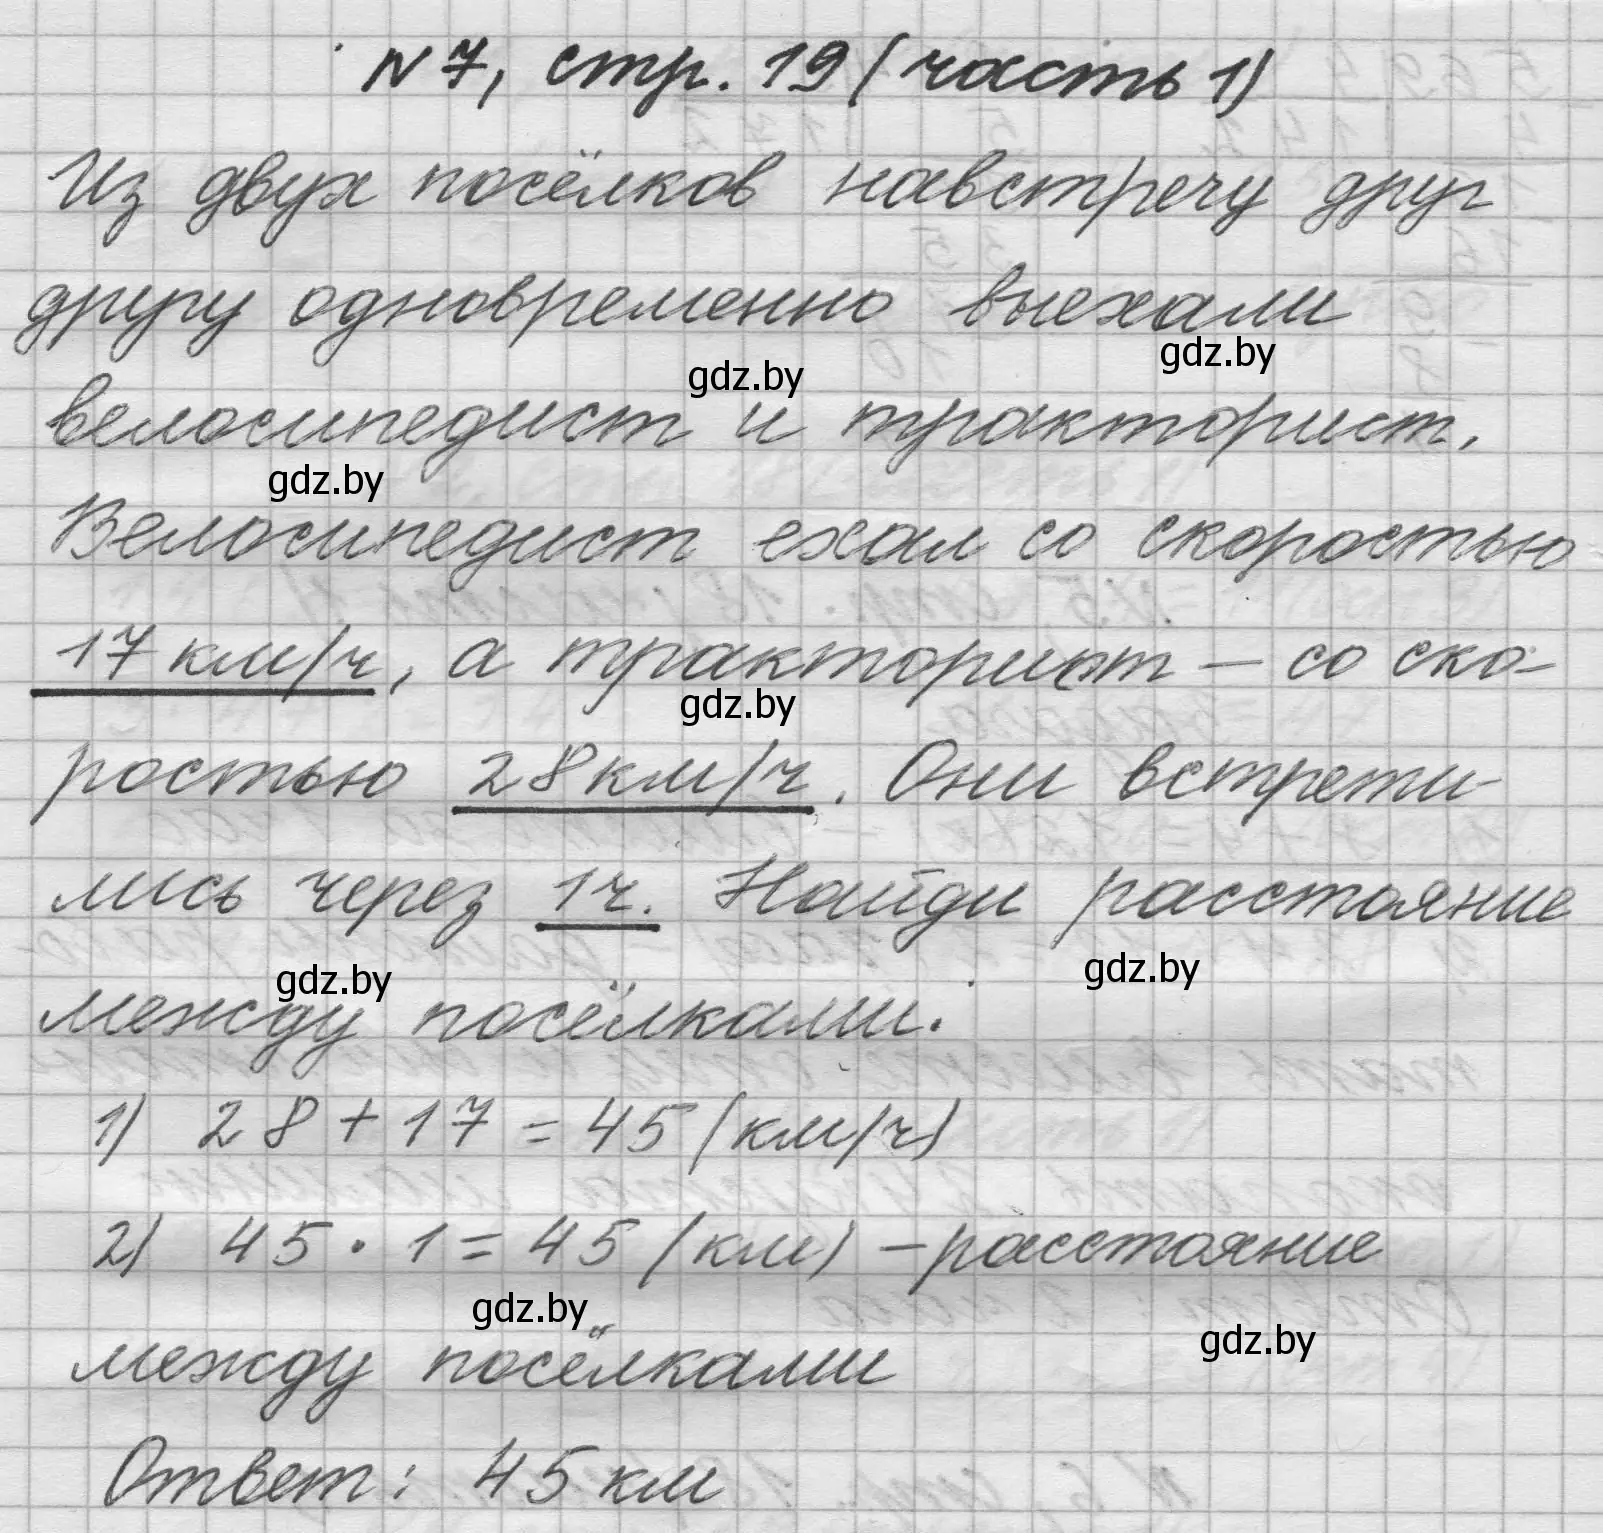 N 7, стр. 19 (часть 1)
Из двух посёлков навстречу друг
другу одновременно выехали
gdz.by
gdz.by
велосипедист и тракторист.
gdz.by
Велосипедист ехал со скоростью
17 км/ч, а тракторист – со ско-
gdz.by
ростью 28 км/ч. Они встрети-
лись через 1 ч. Найди расстояние
gdz.by
gdz.by
между посёлками.
1) 28 + 17 = 45 (км/ч)
2) 45 · 1 = 45 (км) – расстояние
gdz.by
gdz.by
между посёлками
Ответ: 45 км